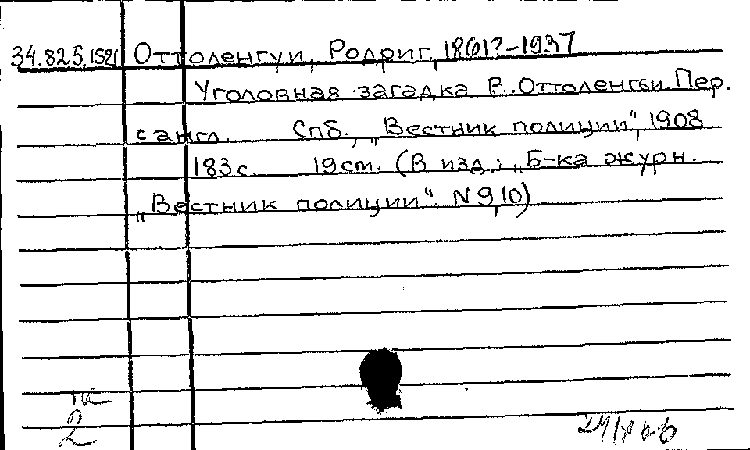 34.825.1521 Оттоленгуи, Родриг, 1861?-1937
Уголовная загадка Р. Оттоленгви. Пер.
с англ. Спб, „Вестник полиции", 1908
183 с. 19 cm. (В изд.: „Б-ка журн.
„Вестник полиции" N 9,10)
2